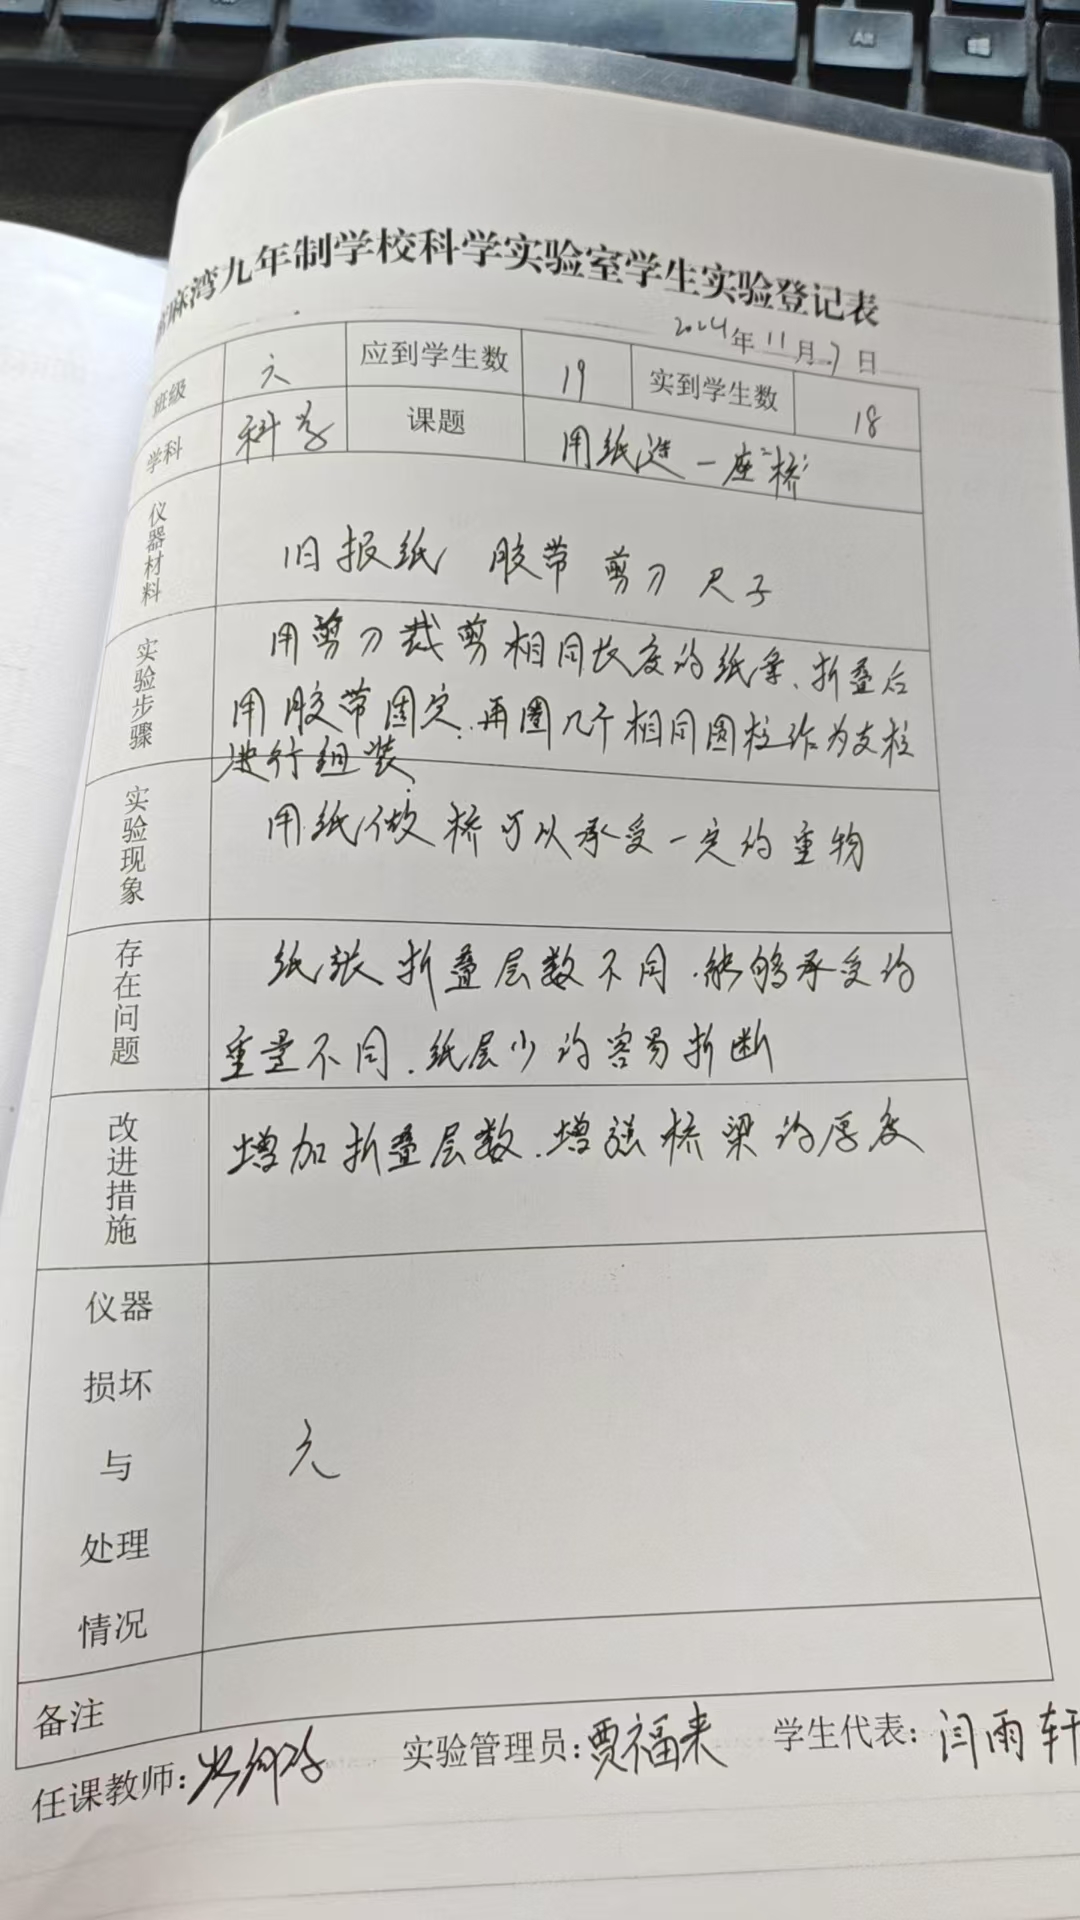 麻湾九年制学校科学实验室学生实验登记表
2024年11月7日
班级 六 应到学生数 19 实到学生数 18
学科 科学 课题 用纸造一座“桥”
仪器材料 旧报纸 胶带 剪刀 尺子
实验步骤 用剪刀裁剪相同长度的纸条、折叠后
用胶带固定.再圈几个相同圆柱作为支柱
进行组装.
实验现象 用纸做桥可以承受一定的重物
存在问题 纸张折叠层数不同.能够承受的
重量不同.纸层少的容易折断
改进措施 增加折叠层数.增强桥梁的厚度
仪器
损坏
与 无
处理
情况
备注
任课教师: 实验管理员:贾福来 学生代表:闫雨轩
Alt